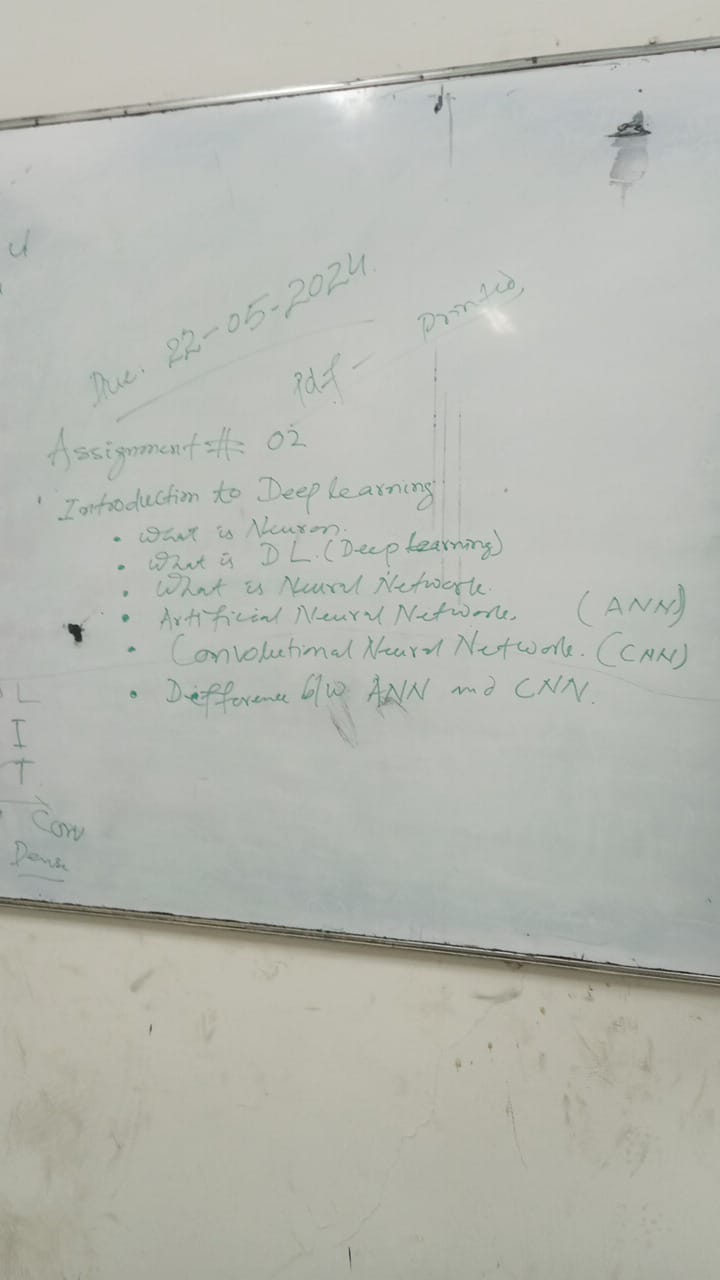 Due. 22-05-2024.
Pdf - Printed,
Assignment # 02
Introduction to Deep Learning
• What is Neuron.
• What is D L. (Deep Learning)
• What is Neural Network.
• Artificial Neural Network. (ANN)
• Convolutional Neural Network. (CNN)
• Difference b/w ANN and CNN.
L
I
T
Conv
Dense